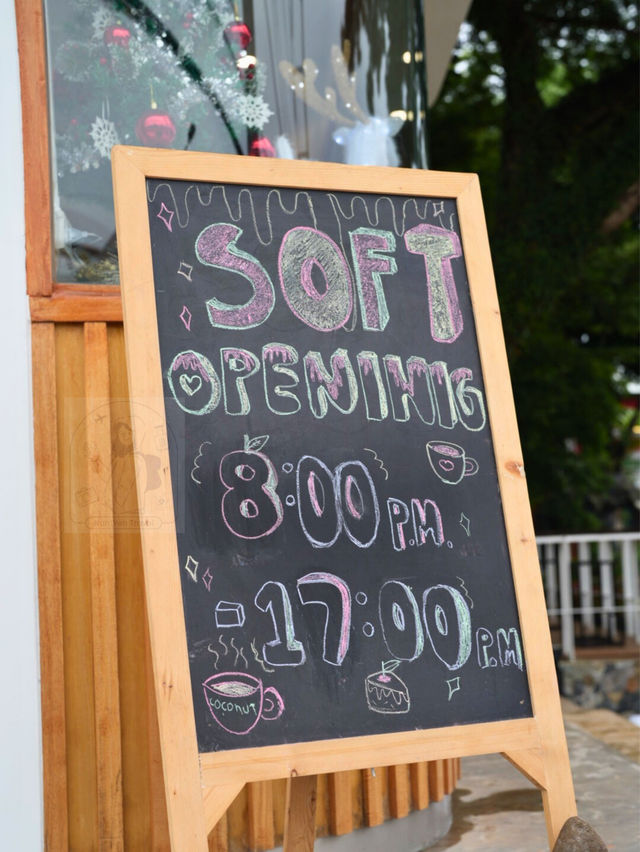 SOFT
OPENING
8:00 P.M.
-17:00 P.M
coconut